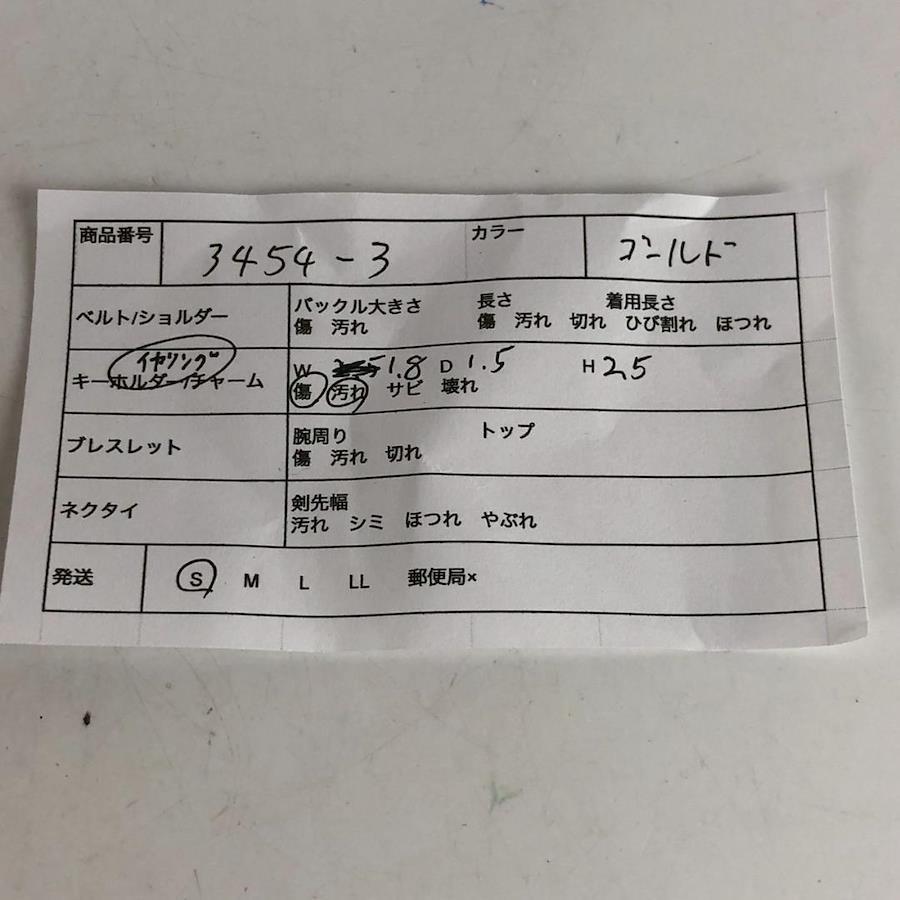 商品番号 3454-3 カラー ゴールド
ベルト/ショルダー バックル大きさ 長さ 着用長さ
傷 汚れ 傷 汚れ 切れ ひび割れ ほつれ
イヤリング
キーホルダー/チャーム W 1.8 D 1.5 H 2.5
傷 汚れ サビ 壊れ
ブレスレット 腕周り トップ
傷 汚れ 切れ
ネクタイ 剣先幅
汚れ シミ ほつれ やぶれ
発送 S M L LL 郵便局×